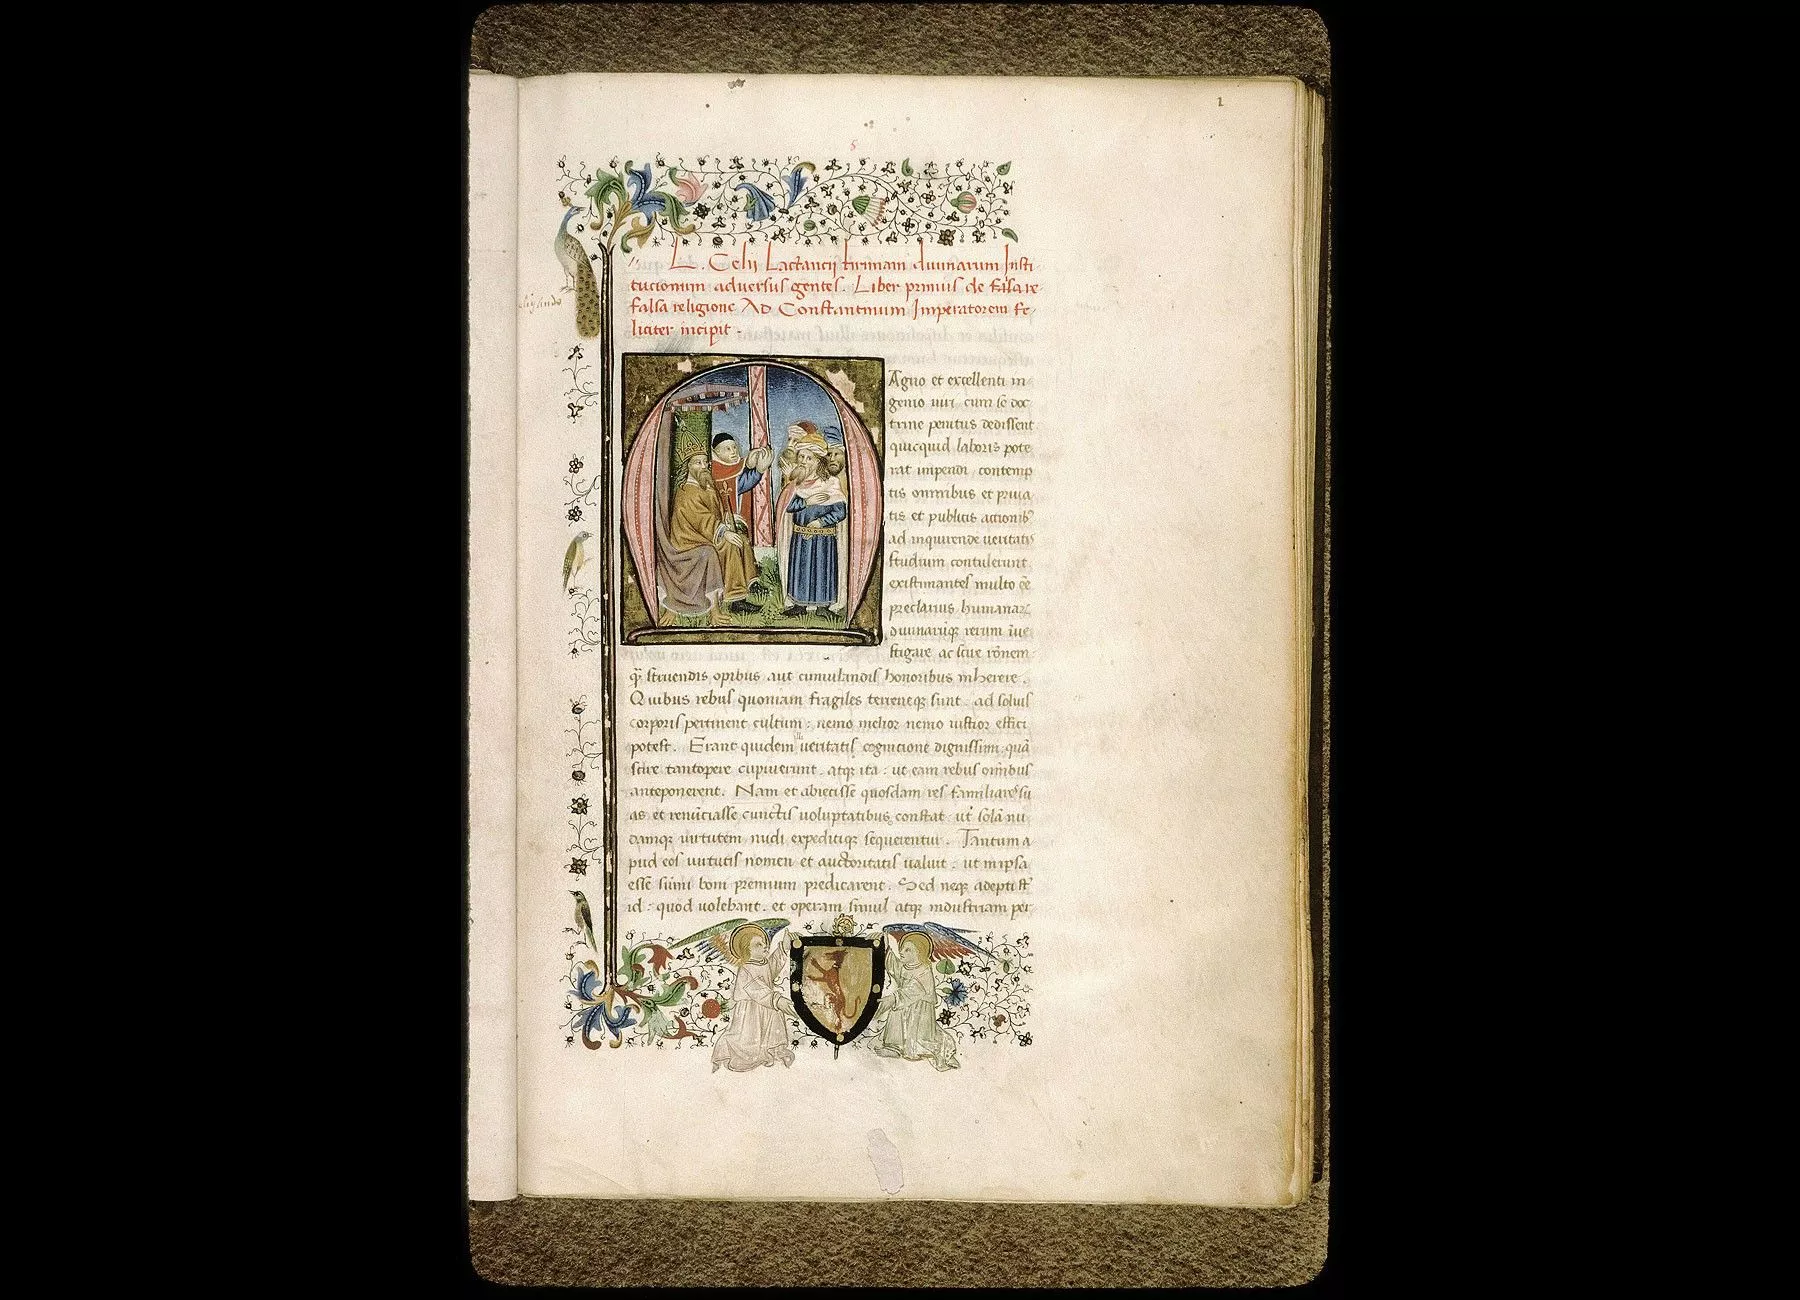 1
L. Celii Lactancii firmiani diuinarum Insti
tucionum aduersus gentes. Liber primus de falsa re
falsa religione AD Constantinum Imperatorem fe
liciter incipit .
Agno et excellenti in
genio uiri cum se doc
trine penitus dedissent
quicquid laboris pote
rat inpendi contemp
tis omnibus et priua
tis et publicis actionibꝰ
ad inquirende ueritatis
studium contulerunt
existimantes multo ēē
preclarius humanaꝝ
diuinarūqꝫ rerum īue
stigare ac scire rōnem
q̄ struendis opibus aut cumulandis honoribus inherere .
Quibus rebus quoniam fragiles terreneqꝫ sunt . ad solius
corporis pertinent cultum : nemo melior nemo iustior effici
potest . Erant quidem illi ueritatis cognicione dignissimi quā
scire tantopere cupiuerunt . atqꝫ ita : ut eam rebus omībus
anteponerent . Nam et abiecisse quosdam res familiares su
as et renūciasse cunctis uoluptatibus constat ut solā nu
damqꝫ uirtutem nudi expeditiqꝫ sequerentur . Tantum a
pud eos uirtutis nomen et auctoritatis ualuit : ut in ipsa
esse sūmi boni premium predicarent . Sed neqꝫ adepti sт̄
id : quod uolebant . et operam simul atqꝫ industriam per